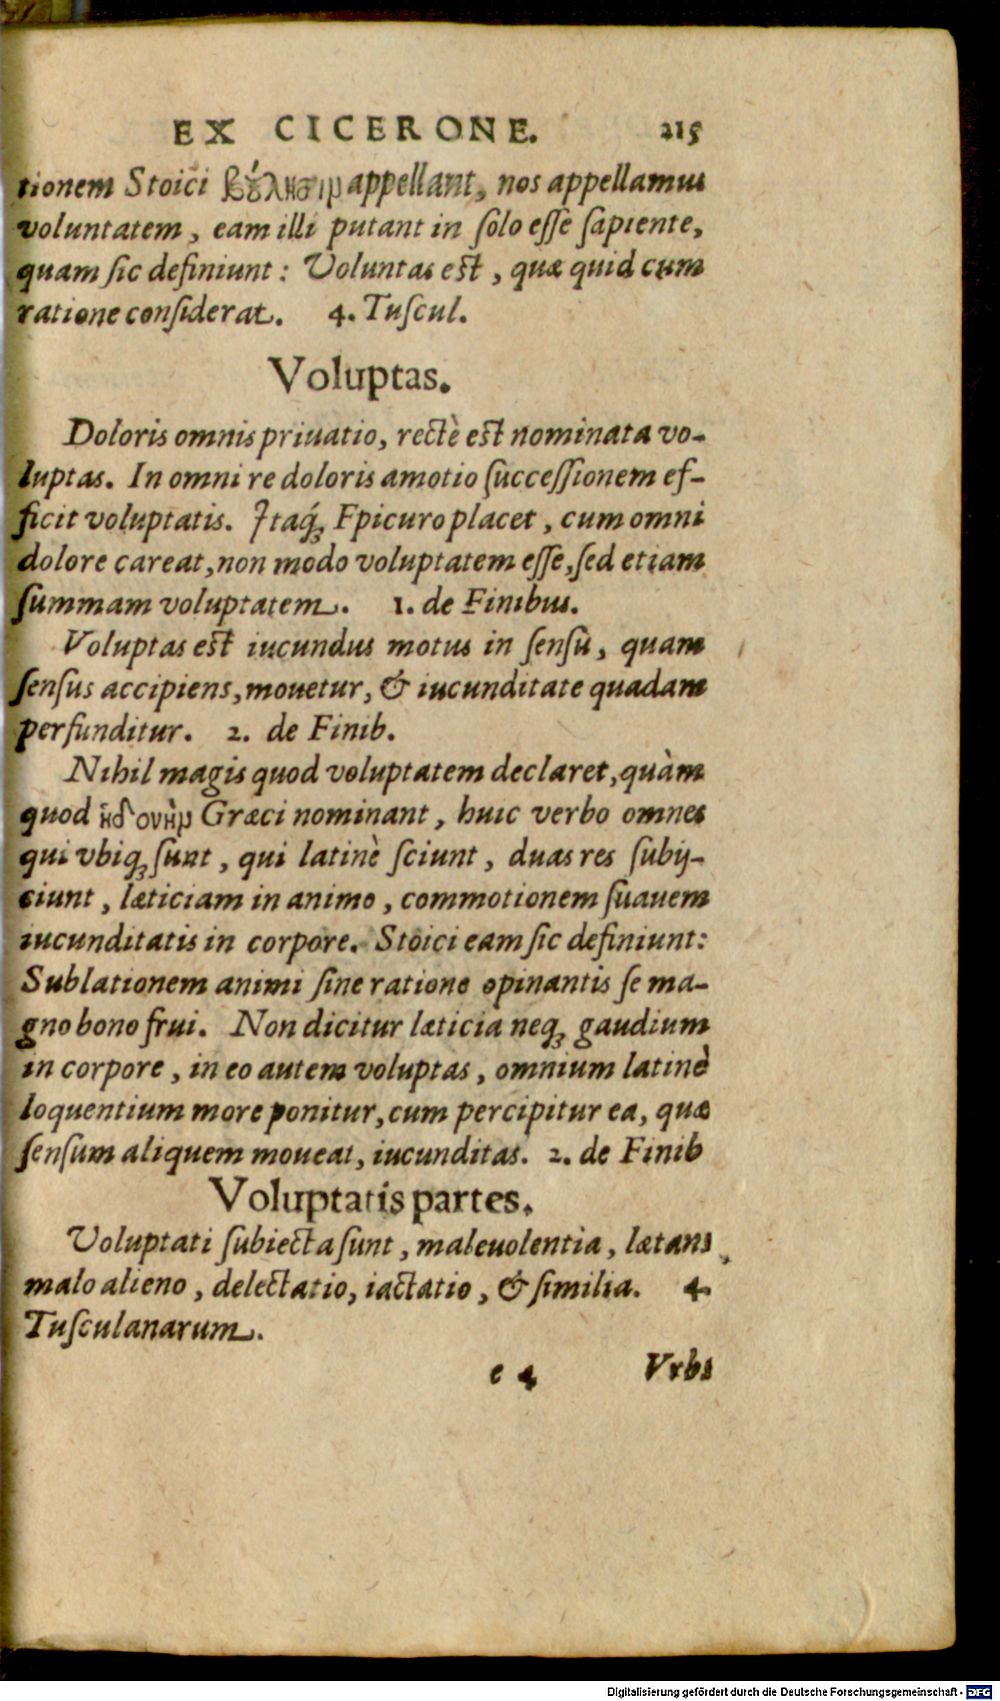 EX CICERONE. 215
tionem Stoici βȣ́λησιμ appellant, nos appellamus
voluntatem, eam illi putant in ſolo eſſe ſapiente,
quam ſic definiunt: Voluntas est, quæ quid cum
ratione conſiderat. 4. Tuſcul.
Voluptas.
Doloris omnis priuatio, rectè est nominata vo-
luptas. In omni re doloris amotio ſucceſſionem ef-
ficit voluptatis. Itaq́ꝫ Fpicuro placet, cum omni
dolore careat, non modo voluptatem eſſe, ſed etiam
ſummam voluptatem. 1. de Finibus.
Voluptas est iucundus motus in ſenſu, quam
ſenſus accipiens, mouetur, & iucunditate quadam
perfunditur. 2. de Finib.
Nihil magis quod voluptatem declaret, quàm
quod ἡδονὴμ Græci nominant, huic verbo omnes
qui vbiqꝫ ſunt, qui latinè ſciunt, duas res ſubij-
ciunt, læticiam in animo, commotionem ſuauem
iucunditatis in corpore. Stoici eam ſic definiunt:
Sublationem animi ſine ratione opinantis ſe ma-
gno bono frui. Non dicitur læticia neqꝫ gaudium
in corpore, in eo autem voluptas, omnium latinè
loquentium more ponitur, cum percipitur ea, quæ
ſenſum aliquem moueat, iucunditas. 2. de Finib
Voluptatis partes.
Voluptati ſubiecta ſunt, maleuolentia, lætans
malo alieno, delectatio, iactatio, & ſimilia. 4.
Tuſculanarum.
e 4 Vrbs
Digitalisierung gefördert durch die Deutsche Forschungsgemeinschaft - DFG